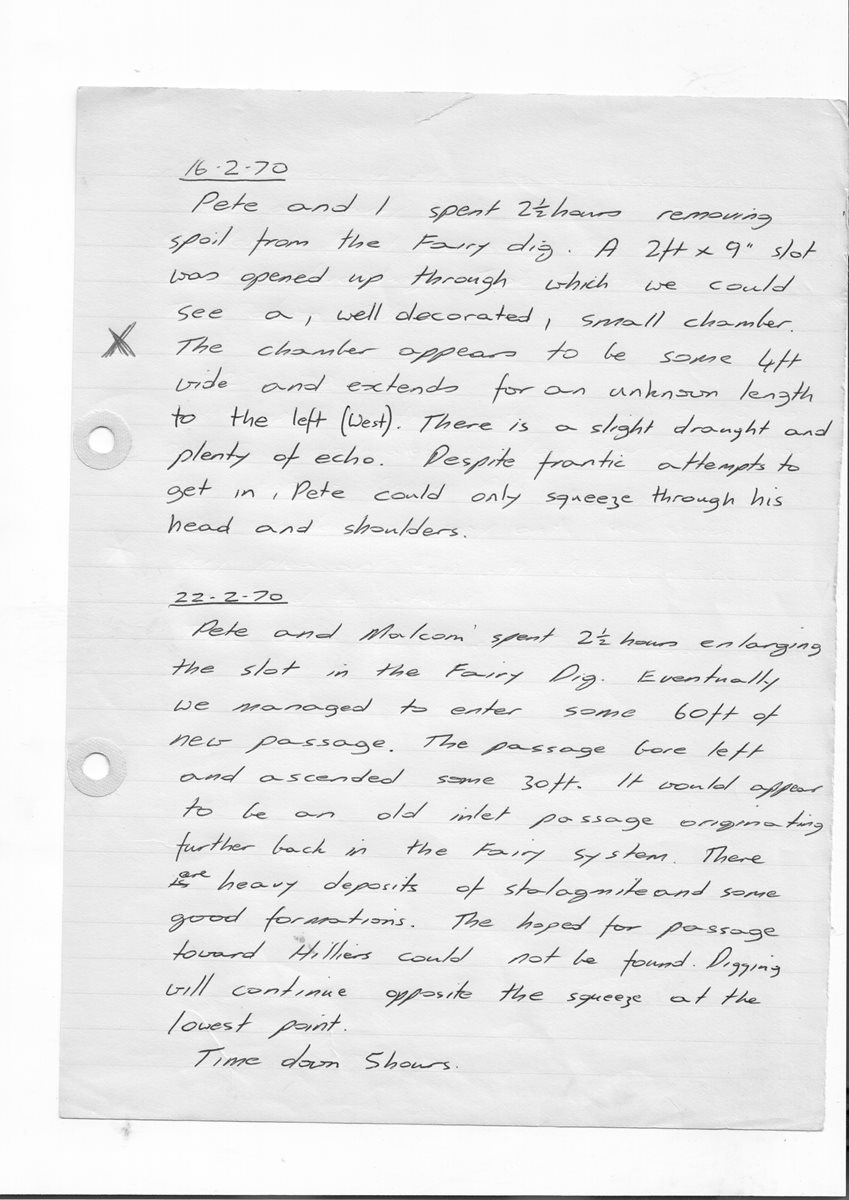 16-2-70
Pete and I spent 2½ hours removing
spoil from the Fairy dig. A 2ft x 9" slot
was opened up through which we could
see a, well decorated, small chamber.
X The chamber appears to be some 4ft
wide and extends for an unknown length
to the left (West). There is a slight draught and
plenty of echo. Despite frantic attempts to
get in, Pete could only squeeze through his
head and shoulders.
22-2-70
Pete and Malcom spent 2½ hours enlarging
the slot in the Fairy Dig. Eventually
we managed to enter some 60ft of
new passage. The passage bore left
and ascended some 30ft. It would appear
to be an old inlet passage originating
further back in the Fairy system. There
are heavy deposits of stalagmite and some
good formations. The hoped for passage
toward Hilliers could not be found. Digging
will continue opposite the squeeze at the
lowest point.
Time down 5hours.